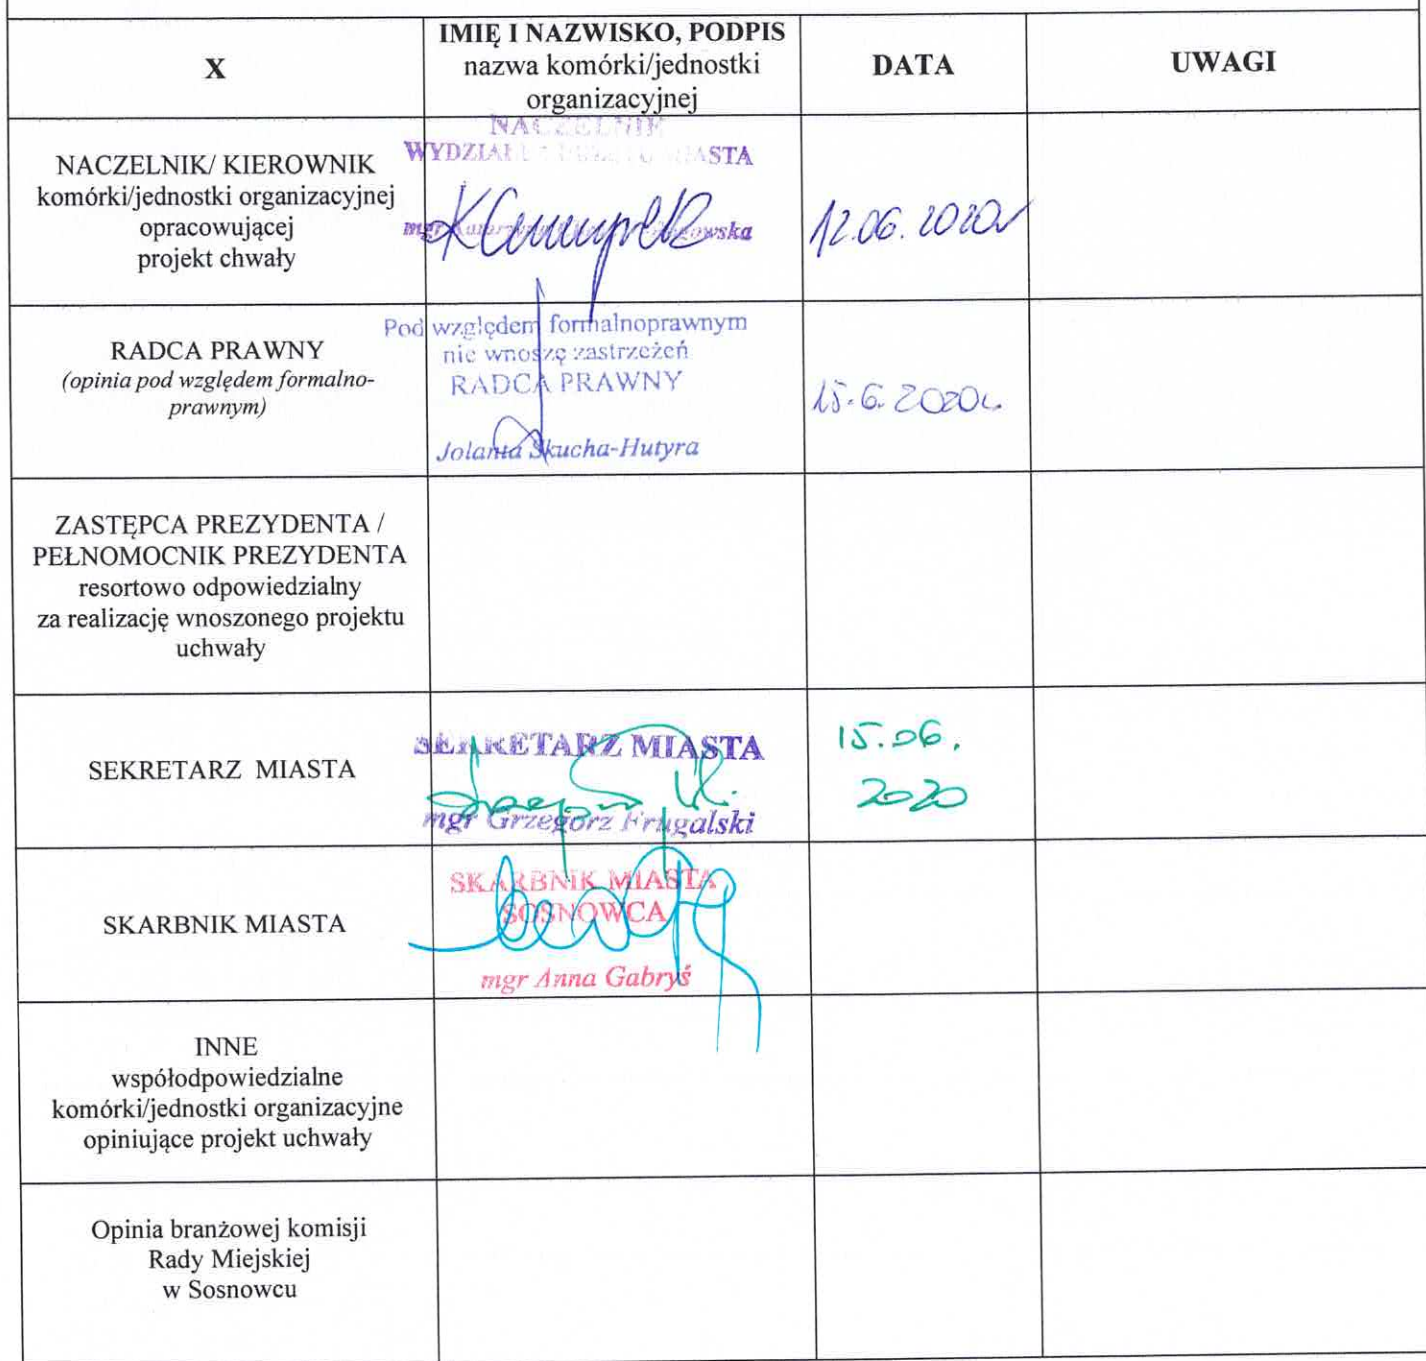 X
IMIĘ I NAZWISKO, PODPIS
nazwa komórki/jednostki
organizacyjnej
DATA
UWAGI
NACZELNIK/ KIEROWNIK
komórki/jednostki organizacyjnej
opracowującej
projekt chwały
NACZELNIK
WYDZIAŁU MIASTA
mgr
12.06.2020r
RADCA PRAWNY
(opinia pod względem formalno-
prawnym)
Pod względem formalnoprawnym
nie wnoszę zastrzeżeń
RADCA PRAWNY
Jolanta Skucha-Hutyra
15.6.2020r.
ZASTĘPCA PREZYDENTA /
PEŁNOMOCNIK PREZYDENTA
resortowo odpowiedzialny
za realizację wnoszonego projektu
uchwały
SEKRETARZ MIASTA
SEKRETARZ MIASTA
mgr Grzegorz Frugalski
15.06.
2020
SKARBNIK MIASTA
SKARBNIK MIASTA
SOSNOWCA
mgr Anna Gabryś
INNE
współodpowiedzialne
komórki/jednostki organizacyjne
opiniujące projekt uchwały
Opinia branżowej komisji
Rady Miejskiej
w Sosnowcu